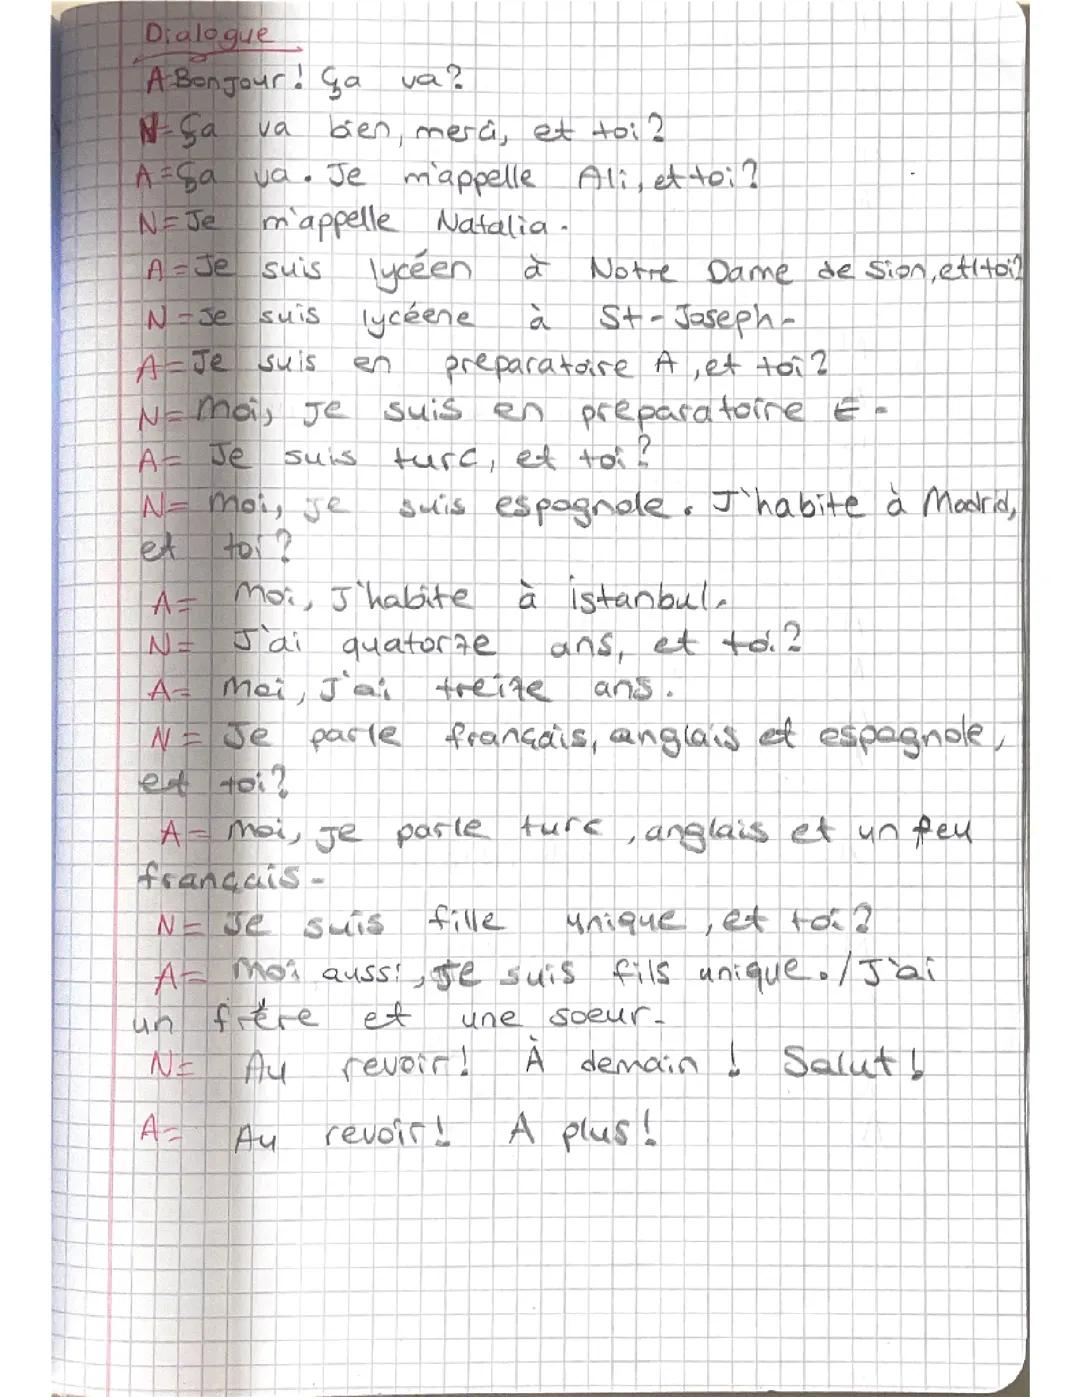 Dialogue
A-Bonjour! Ça va?
N-Ça va bien, merci, et toi?
A=Ça va. Je m'appelle Ali, et toi?
N=Je m'appelle Natalia.
A=Je suis lycéen à Notre Dame de Sion, et toi?
N=Je suis lycéene à St-Joseph-
A=Je suis en preparatoire A, et toi?
N=Moi, je suis en preparatoire E-
A= Je suis turc, et toi?
N= Moi, je suis espagnole. J'habite à Madrid,
et toi?
A= Moi, J'habite à istanbul.
N= J'ai quatorze ans, et toi?
A= Moi, J'ai treize ans.
N= Je parle français, anglais et espagnole,
et toi?
A= Moi, je parle turc, anglais et un peu
français-
N= Je suis fille unique, et toi?
A= Moi aussi, Je suis fils unique./J'ai
un frère et une soeur-
N= Au revoir! À demain! Salut!
A= Au revoir! A plus!